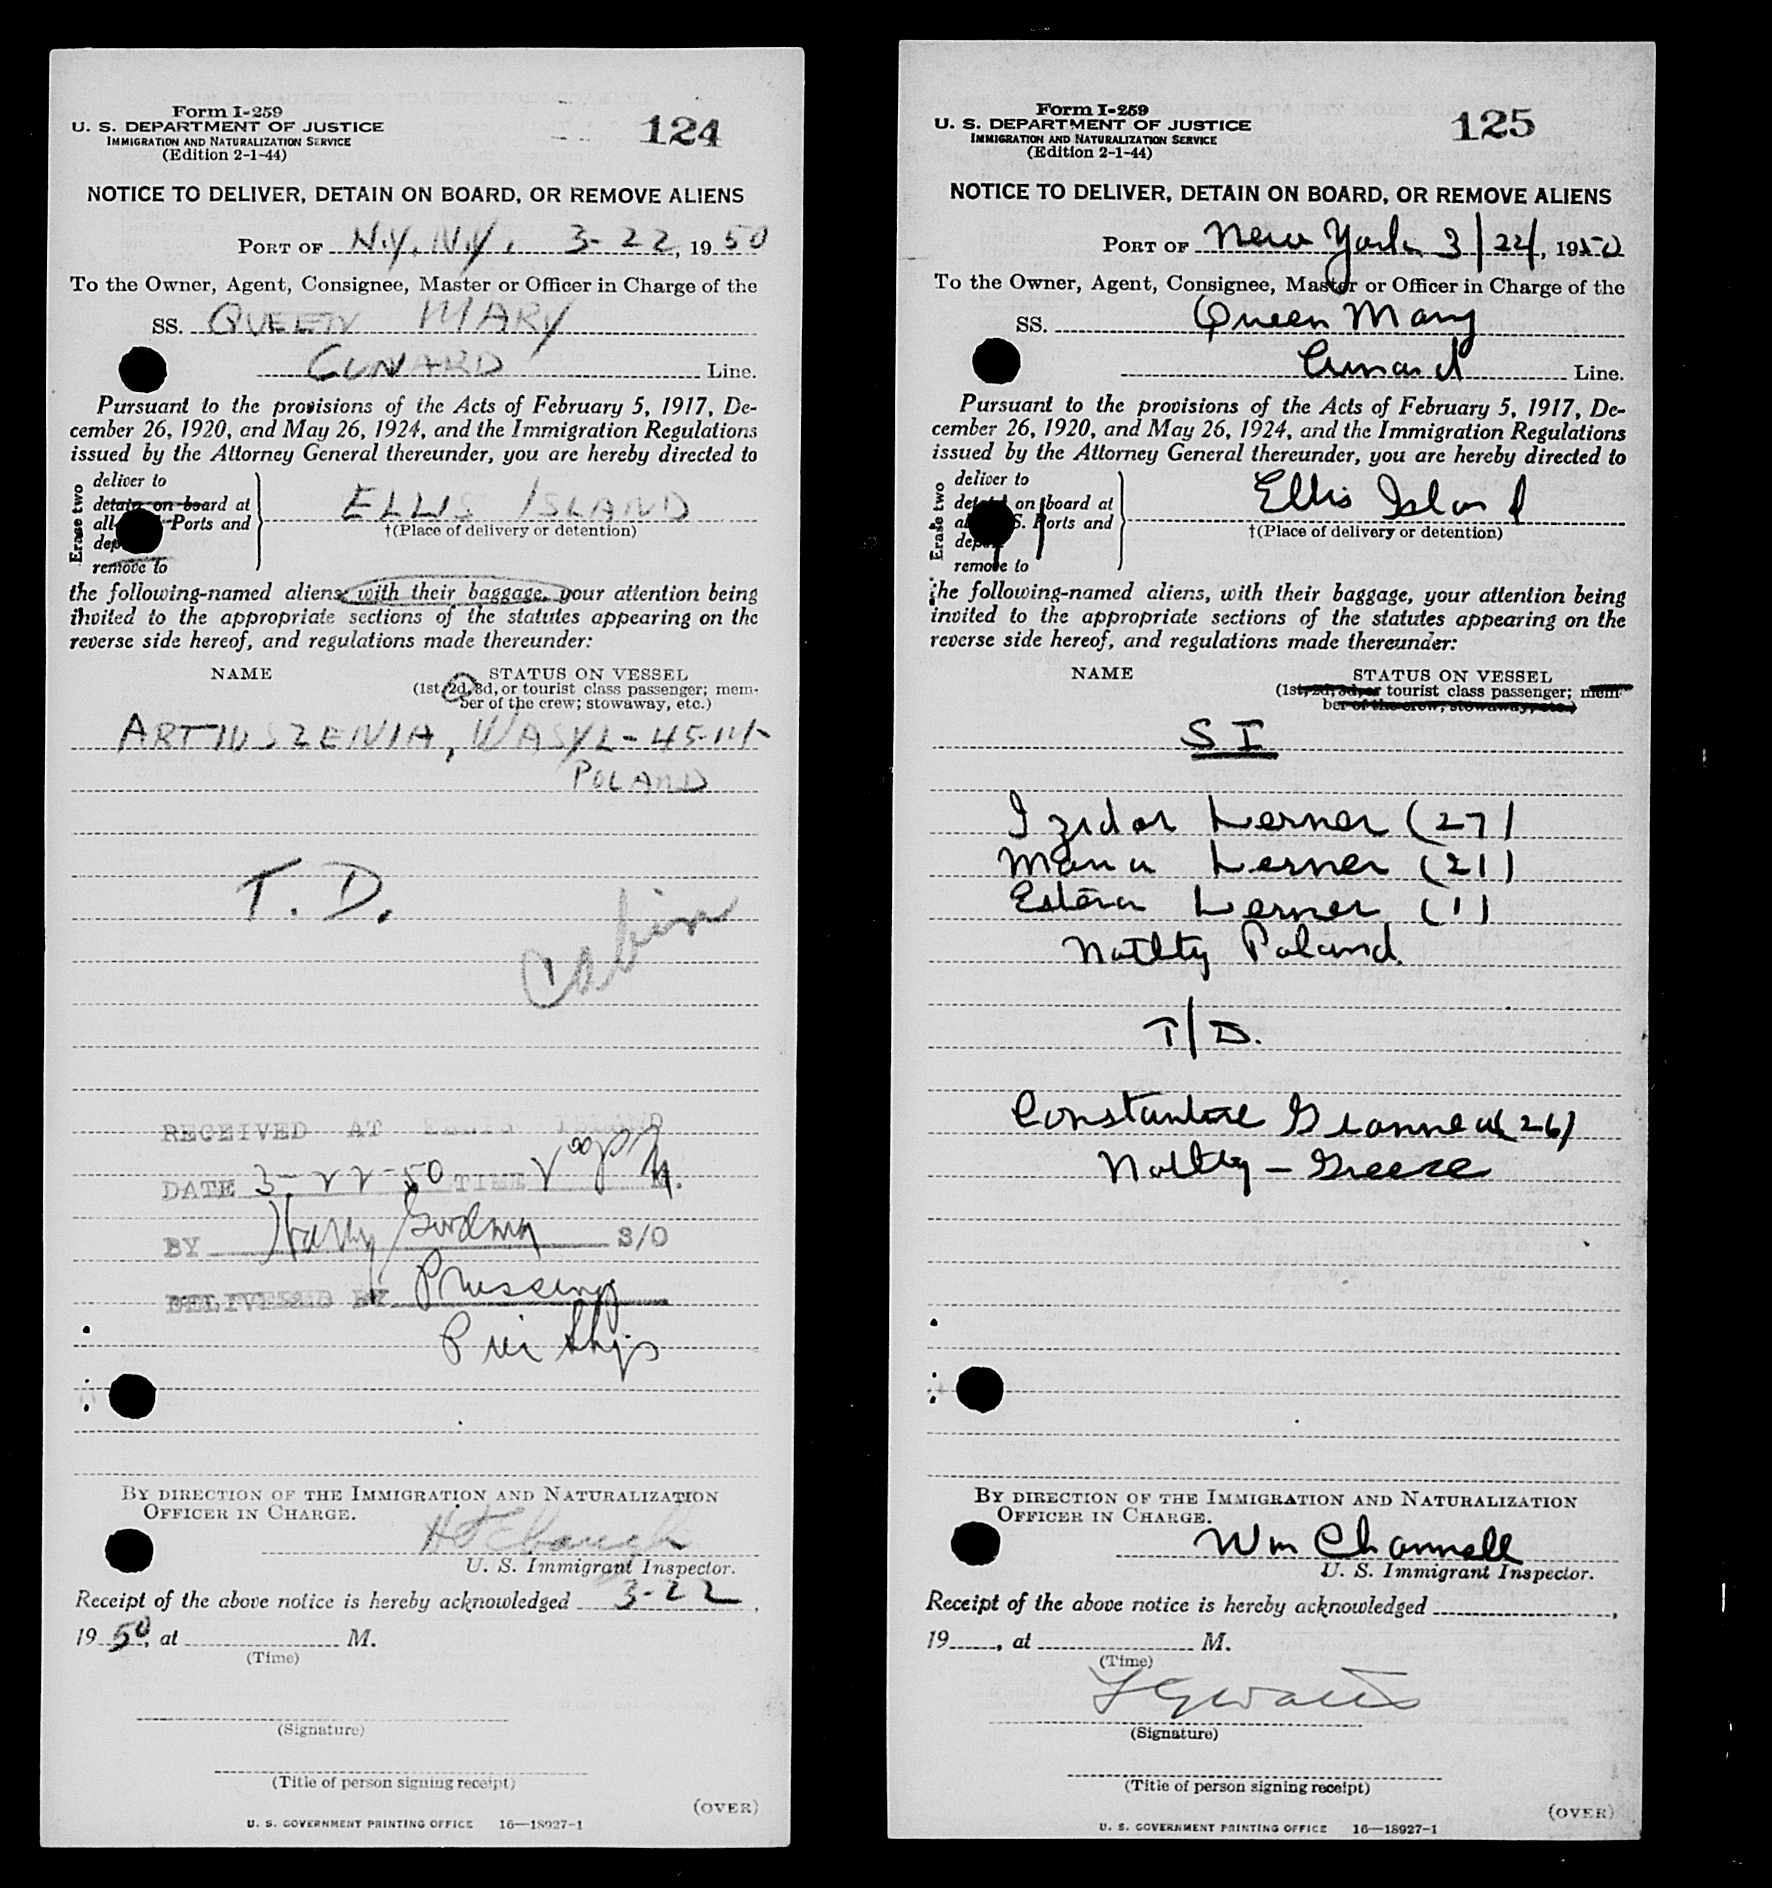 Form I-259
U. S. DEPARTMENT OF JUSTICE
IMMIGRATION AND NATURALIZATION SERVICE
(Edition 2-1-44)
124
NOTICE TO DELIVER, DETAIN ON BOARD, OR REMOVE ALIENS
PORT OF N.Y. N.Y. 3-22, 1950
To the Owner, Agent, Consignee, Master or Officer in Charge of the
SS. QUEEN MARY
CUNARD Line.
Pursuant to the provisions of the Acts of February 5, 1917, De-
cember 26, 1920, and May 26, 1924, and the Immigration Regulations
issued by the Attorney General thereunder, you are hereby directed to
Erase two
deliver to
detain on board at
all Ports and
remove to
ELLIS ISLAND
†(Place of delivery or detention)
the following-named aliens, with their baggage, your attention being
invited to the appropriate sections of the statutes appearing on the
reverse side hereof, and regulations made thereunder:
NAME STATUS ON VESSEL
(1st, 2d, 3d, or tourist class passenger; mem-
ber of the crew; stowaway, etc.)
ARTIUSZENIA, WASYL - 45-M-
POLAND
T. D.
Cabin
RECEIVED AT ELLIS ISLAND
DATE 3-22-50 TIME M.
BY Harry Goodman S/O
DELIVERED BY Prussing
BY DIRECTION OF THE IMMIGRATION AND NATURALIZATION
OFFICER IN CHARGE.
U. S. Immigrant Inspector.
Receipt of the above notice is hereby acknowledged 3-22,
1950, at M.
(Time)
(Signature)
(Title of person signing receipt)
(OVER)
U. S. GOVERNMENT PRINTING OFFICE 16—18927-1
Form I-259
U. S. DEPARTMENT OF JUSTICE
IMMIGRATION AND NATURALIZATION SERVICE
(Edition 2-1-44)
125
NOTICE TO DELIVER, DETAIN ON BOARD, OR REMOVE ALIENS
PORT OF New York 3/22, 1950
To the Owner, Agent, Consignee, Master or Officer in Charge of the
SS. Queen Mary
Cunard Line.
Pursuant to the provisions of the Acts of February 5, 1917, De-
cember 26, 1920, and May 26, 1924, and the Immigration Regulations
issued by the Attorney General thereunder, you are hereby directed to
Erase two
deliver to
on board at
S. Ports and
remove to
Ellis Island
†(Place of delivery or detention)
the following-named aliens, with their baggage, your attention being
invited to the appropriate sections of the statutes appearing on the
reverse side hereof, and regulations made thereunder:
NAME STATUS ON VESSEL
(1st, 2d, 3d, or tourist class passenger; mem-
ber of the crew; stowaway, etc.)
SI
Izidor Lerner (27)
Maria Lerner (21)
Estera Lerner (1)
Natlty Poland
T/D.
Constantine (26)
Natlty - Greece
BY DIRECTION OF THE IMMIGRATION AND NATURALIZATION
OFFICER IN CHARGE.
Wm Channell
U. S. Immigrant Inspector.
Receipt of the above notice is hereby acknowledged ,
19 , at M.
(Time)
(Signature)
(Title of person signing receipt)
(OVER)
U. S. GOVERNMENT PRINTING OFFICE 16—18927-1